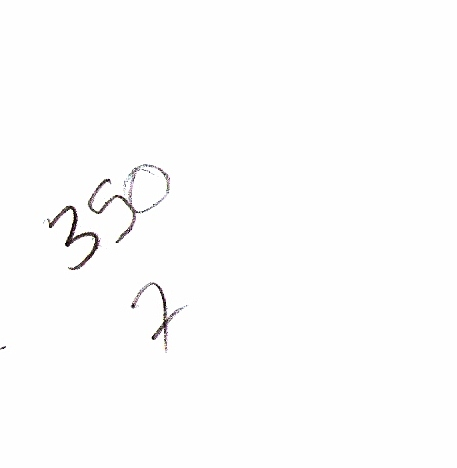 350
7